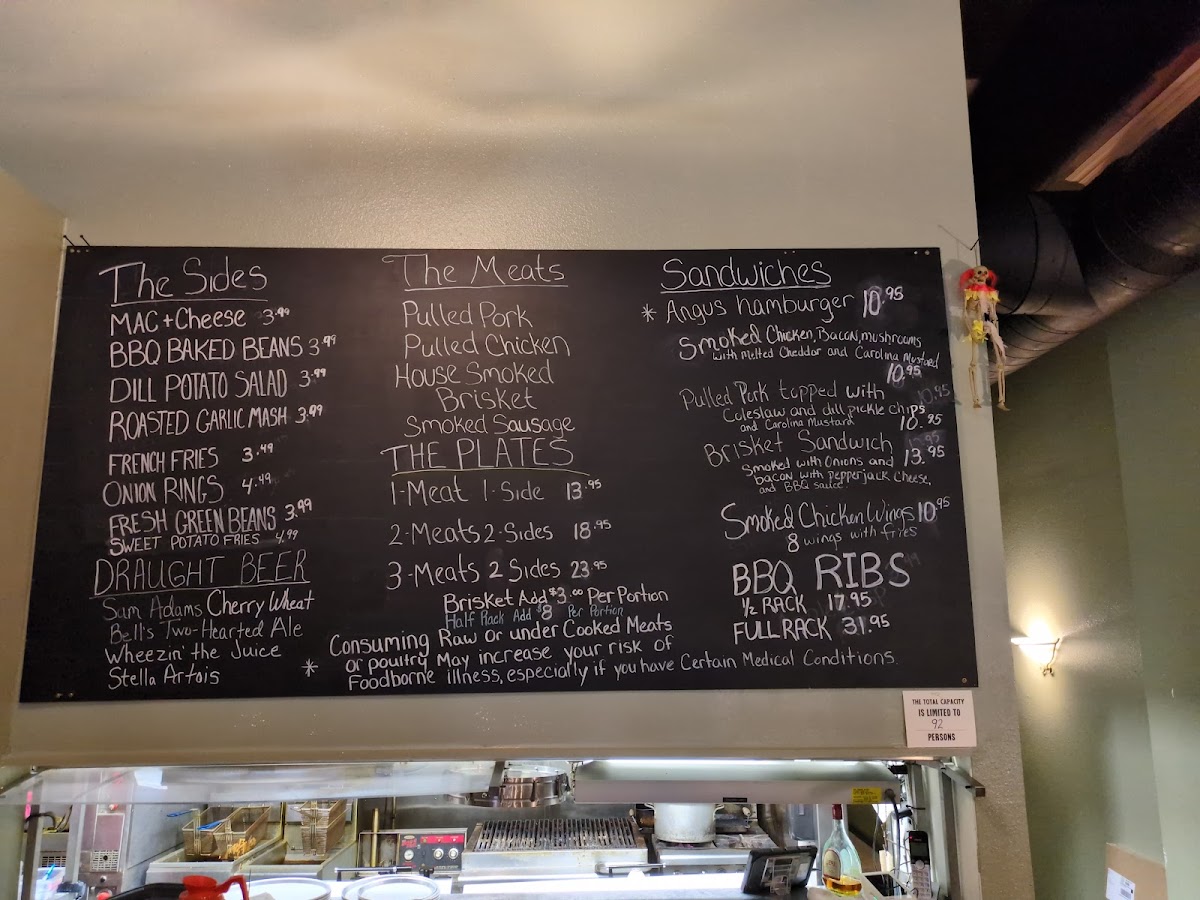 The Sides
MAC + Cheese 3.49
BBQ BAKED BEANS 3.49
DILL POTATO SALAD 3.49
ROASTED GARLIC MASH 3.49
FRENCH FRIES 3.49
ONION RINGS 4.49
FRESH GREEN BEANS 3.99
SWEET POTATO FRIES 4.99
DRAUGHT BEER
Sam Adams Cherry Wheat
Bell's Two-Hearted Ale
Wheezin' the Juice
Stella Artois
The Meats
Pulled Pork
Pulled Chicken
House Smoked
Brisket
Smoked Sausage
THE PLATES
1-Meat 1-Side 13.95
2-Meats 2-Sides 18.95
3-Meats 2 Sides 23.95
Brisket Add $3.00 Per Portion
Half Rack Add $8 Per Portion
* Consuming Raw or under Cooked Meats
or poultry May increase your risk of
Foodborne illness, especially if you have Certain Medical Conditions.
Sandwiches
* Angus hamburger 10.95
Smoked Chicken, Bacon, mushrooms
with Melted Cheddar and Carolina Mustard
10.95
Pulled Pork topped with
Coleslaw and dill pickle chips
and Carolina Mustard 10.95
Brisket Sandwich 13.95
Smoked with Onions and
bacon with pepperjack cheese,
and BBQ sauce.
Smoked Chicken Wings 10.95
8 wings with fries
BBQ RIBS
1/2 RACK 17.95
FULL RACK 31.95
THE TOTAL CAPACITY
IS LIMITED TO
92
PERSONS